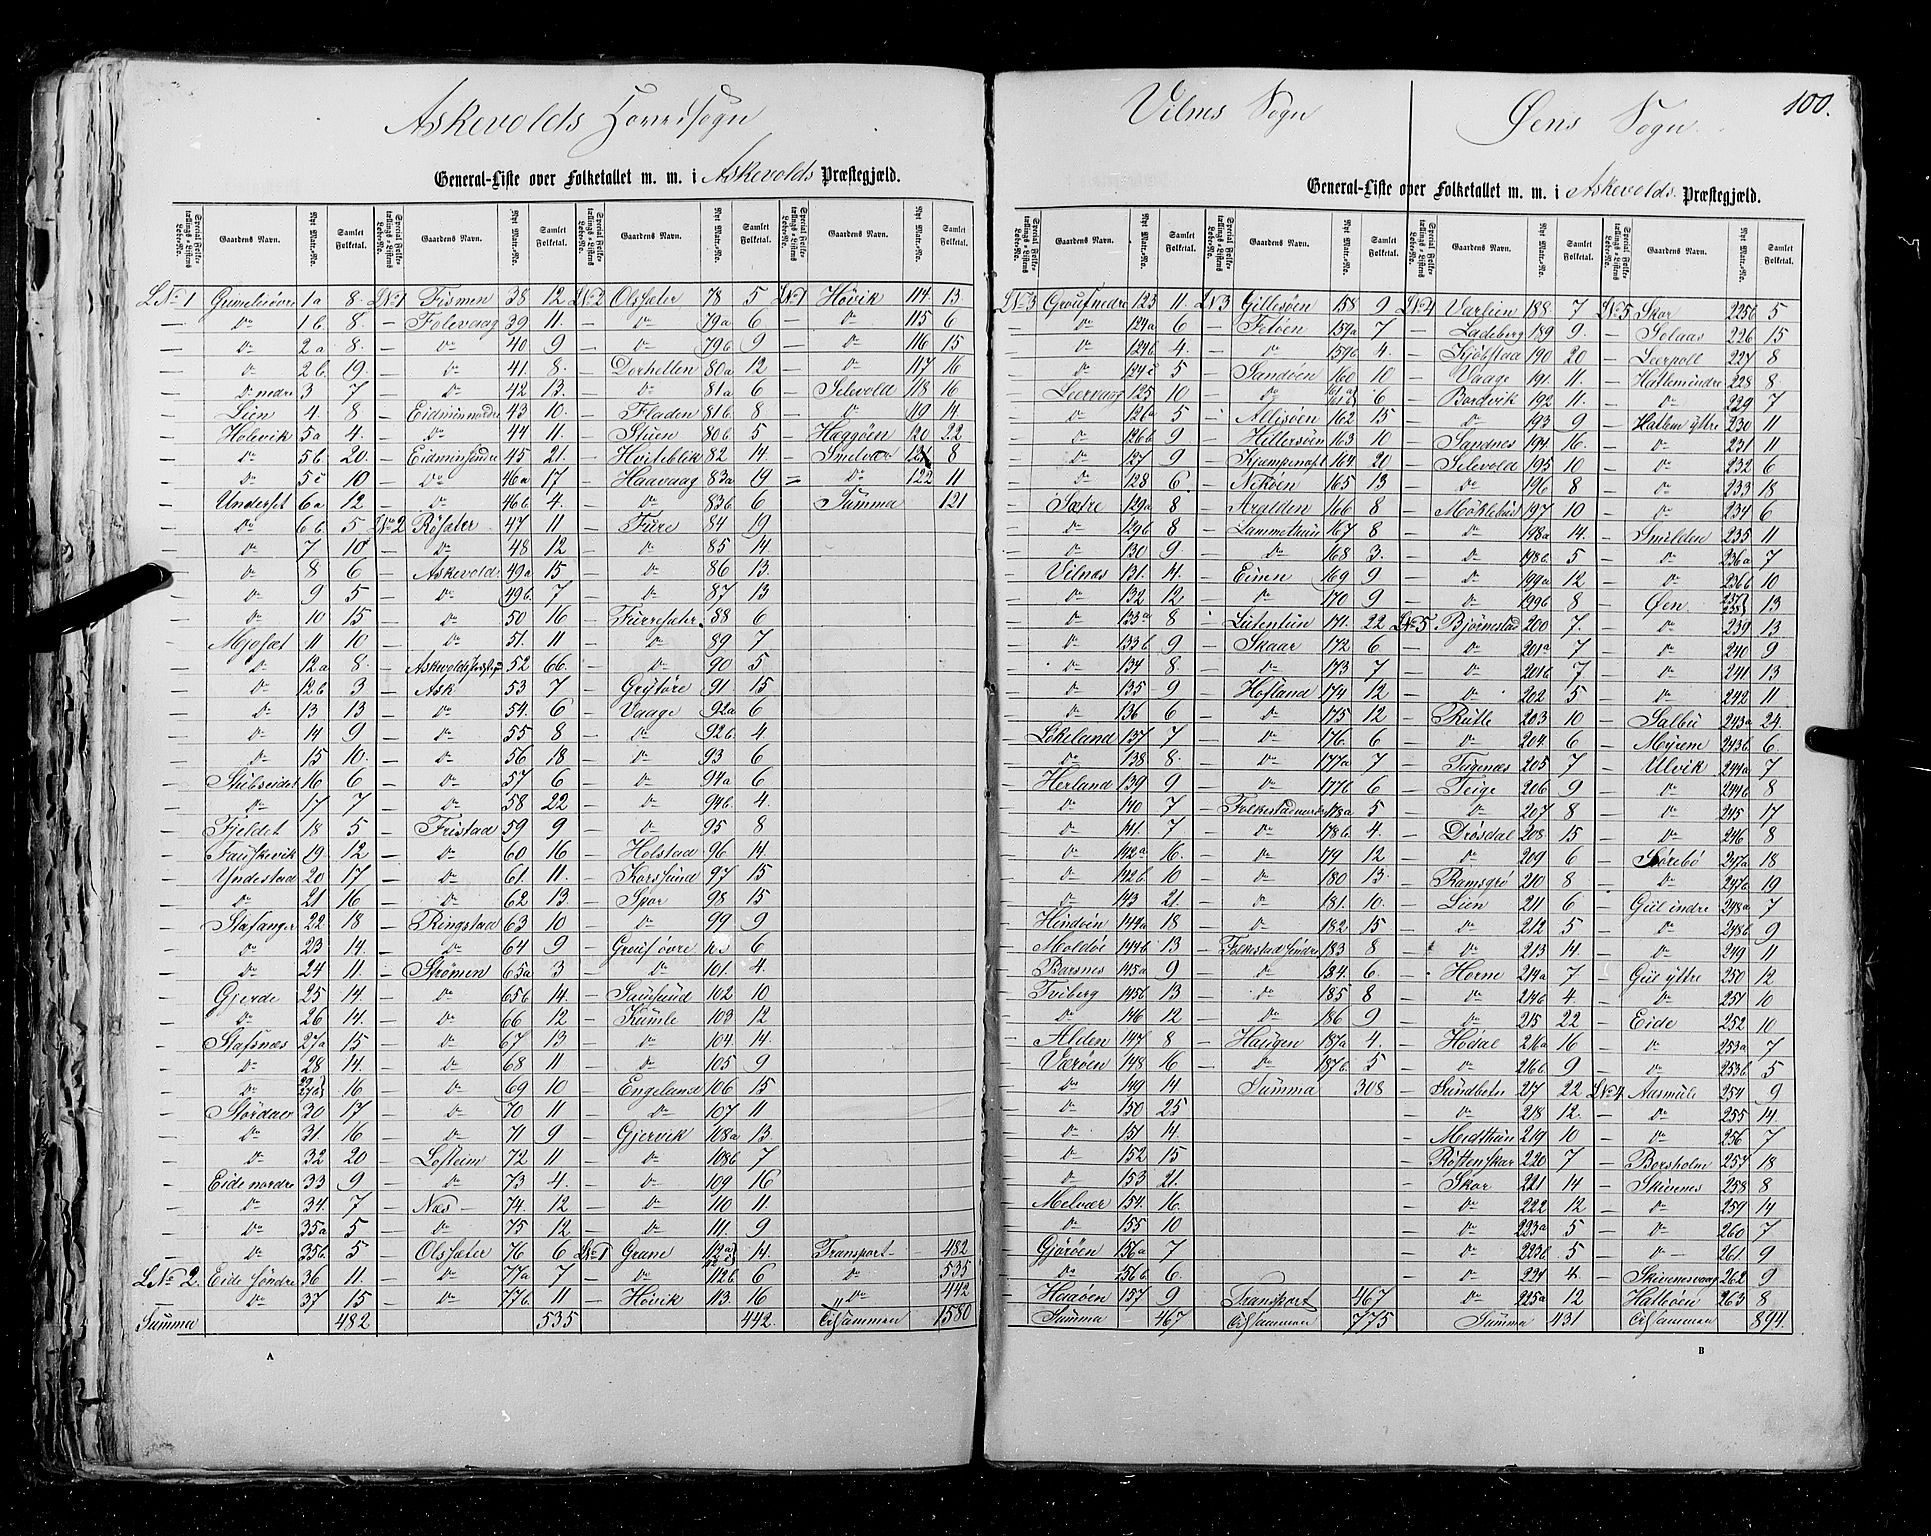 Askevolds Hovedsogn
General-Liste over Folketallet m. m. i Askevolds Præstegjæld.
Special Folketællings-Listens Løbe-No. Gaardens Navn. Nyt Matr.-No. Samlet Folketal. Special Folketællings-Listens Løbe-No. Gaardens Navn. Nyt Matr.-No. Samlet Folketal. Special Folketællings-Listens Løbe-No. Gaardens Navn. Nyt Matr.-No. Samlet Folketal. Special Folketællings-Listens Løbe-No. Gaardens Navn. Nyt Matr.-No. Samlet Folketal.
L No 1 1a 8. L No 1 Fismen 38 12 L No 2 Olsæter 78 5 L No 1 Høvik 114. 13.
— Do 1b. 8. — Folevaag 39 11. — Do 79a 6 — Do 115 6
— Do 2a 8. — Do 40 9 — Do 79b 9 — Do 116 15
— Do 2b. 19. — Do 41. 8. — Dorhellen 80a 12 — Do 117 16
— Do nedre 3 7 — Do 42 13. — Do 81a 6 — Selevold 118 16
— Lien 4. 8 — Eidmin nordre 43 10. — Fladen 81b. 8 — Do 119 14
— Holevik 5a 4. — Do 44 11. — Stuen 80b 5 — Hæggøen 120. 22
— Do 5b. 20. — 45 21. — Hvitebleik 82 14 — Smelvær 121 8
— Do 5c 10 — Do 46a 17 — Haavaag 83a 19 — Do 122 11
— Underset 6a 12 — Do 46b 4. — Do 83b 6 Summa 121
— Do 6b. 5 L No 2 Røsæter 47 11 — Fure 84 19
— Do 7 10 — Do 48 12 — Do 85 14.
— Do 8 6 — Askevold 49a 15 — Do 86 13.
— Do 9 5 — Do 49b. 7 — Do 87 13
— Do 10 15 — Do 50 16 — Furresæter 88 6
— Mjøset 11 10 — Do 51. 11 — Do 89 7
— Do 12a 8. — 52 66. — Do 90 5
— Do 12b 3 — Ask 53 7 — Grytøre 91 15
— Do 13 13 — Do 54. 6 — Vaage 92a 6
— Do 14 9 — Do 55 8 — Do 92b 4
— Do 15 10. — Do 56 18 — Do 93 6
— Stubseidet 16 6 — Do 57 6 — Do 94a 6
— Do 17 7 — Do 58 22 — Do 94b. 4.
— Fjeldet 18 5 — Fristad 59 9 — Do 95 8
— Fauskevik 19. 12 — Do 60 16 — Holstad 96 14.
— Yndestad 20 17 — Do 61 11. — Korssund 97 15
— Do 21 16 — Do 62 13. — Spor 98 15
— Stafanger 22 18 — Ringstad 63 10 — Do 99 9
— Do 23 14. — Do 64 9 — Grouføvre 6
— Do 24 11. — Strømen 65a 3 — Do 101. 4.
— Gjerde 25 14. — Do 65b 14. — Sausund 102 10
— Do 26 14. — Do 66 12 — Kumle 103 12
— Stafsnæs 27a 15 — Do 67 13 — Do 104. 14.
— Do 28 14. — Do 68 11 — Do 105 9
— Do 16 — Do 69 10 — Engeland 106 15
— Stordaw 30 17 — Do 70 11 — Do 107 11
— Do 31. 16 — Do 71 9 — Gjervik 108a 13.
— Do 32 20 — Losteim 72 11 — Do 108b 7
— Eide nordre 33 9 — Do 73 4. — Do 109 16
— Do 34. 7 — Næs 74. 12 — Do 110 11.
— Do 35a 5 — Do 75 12 — Do 111. 9
— Do 35b. 5 — Olsæter 76 6 L No 1 Grane 14. Transport 482
L No 2. Eide søndre 36 11. — Do 77a 7 — Do 112b 6 Do 535
— Do 37 15 — Do 77b. 11 — Høvik 113. 16 Do 442
Summa 482 535 442. Tilsammen 1580
A

100.
Vilnes Sogn Øens Sogn.
General-Liste over Folketallet m. m. i Askevolds Præstegjæld.
Special Folketællings-Listens Løbe-No. Gaardens Navn. Nyt Matr.-No. Samlet Folketal. Special Folketællings-Listens Løbe-No. Gaardens Navn. Nyt Matr.-No. Samlet Folketal. Special Folketællings-Listens Løbe-No. Gaardens Navn. Nyt Matr.-No. Samlet Folketal. Special Folketællings-Listens Løbe-No. Gaardens Navn. Nyt Matr.-No. Samlet Folketal.
L No 3 Grouf nedre 123 11. L No 3 Gillesøen 158 9 L No 4 188. 7 L No 5 Skor 225b 5
— Do 124a 6 — Fetøen 159a 7 — Ladeberg 189 9. — Solaas 226 15
— Do 124b 4. — Do 159b. 4. — Kjøbstad 190 20 — Leerpoll 227 8
— Do 124c 5 — Sandøen 160 10 — Vaage 191. 11. — Hatlem indre 228 8.
— Leervaag 125 10 — Do 6 — Bordvik 192 11. — Do 229 7
— Do 126a 5 — Allisøen 162 15 — Do 193 9 — Hatlem yttre 230 11
— Do 126b 9 — Hillersøen 163 10 — Sandnes 194 16. — Do 231 11
— Do 127 9 — 164. 20 — Selevold 195 10 — Do 232 6
— Do 128 6 — Nekøen 165 13 — Do 196 8 — Do 233 18
— Sætre 129a 8 — Aralden 166 8 — 197 10 — Do 234 6
— Do 129b 8 — 167 8 — Do 198a 14. — Smilden 235 11
— Do 130 9 — Do 168 3. — Do 198b. 5 — Do 236a 7
— Vilnæs 131. 14. — Eiren 169 9 — Do 199a 12 — Do 236b 10
— Do 132 12. — Do 170 9 — Do 199b 8 — Øen 13
— Do 133a 8 — 171. 22 L No 5 Bjørnestad 200 7. — Do 239 13
— Do 133b 9 — Skaar 172 6 — Do 201a 7 — Do 240 9
— Do 134 8. — Do 173 7 — Do 201b 7 — Do 241 13
— Do 135 9 — Hofland 174 12 — Do 202 5 — Do 242 11
— Do 136 6 — Do 175 12 — Rutle 203 10 — Salbu 243a 24.
— Løkeland 137 7 — Do 176. 6 — Do 204. 6 — Myrene 243b 6.
— Do 138 8. — Do 177a 7 — Tugenæs 205 7 — Ulvik 244a 7
— Herland 139 9 — Do 177b 6 — Teige 206 9 — Do 244b 8
— Do 140 7 — 178a 5 — Do 207 8 — Do 245 17
— Do 141. 7 — Do 178b. 4. — Drøsdal 208 15 — Do 246 8
— Do 142a 16. — Do 179 12 — Do 209 6 — Sørebø 247a 18
— Do 142b 10 — Do 180 13. — Ramsgrø 210 8 — Do 247b 19
— Do 143 21. — Do 181. 10. — Lien 211 6 — Giil indre 248a 7
— Hindøen 144a 18 — Do 182 15 — Do 212 5 — Do 248b 9
— Moldøe 144b 13 — Folkestad søndre 183 8 — Do 213 14. — Do 249 11
— Barsnes 145a 9 — Do 184. 6. — Horne 214a 7 — Giil yttre 250 12
— Tviberg 145b 13 — Do 185 8 — Do 214b 4. — Do 251 10
— Do 146 12 — Do 186 9 — Do 215 22 — Eide 252 10
— Alden 147 8 — Haugen 187a 4. — Hødal 216a 16 — Do 253a 7
— Værøen 148 16 — Do 187b. 5 — Do 216b 9 — Do 253b. 5
— Do 149 14. Summa 308 — 217 22 L No 4. Aasmule 254 9
— Do 150 25 — Do 218 12. — Do 255 14.
— Do 151 14. — Medthun 219 10 — Do 256 7
— Do 152 15 — Røttenskar 220 7 — Borsholm 257 18
— Do 153 21. — Skor 221 14 — Skivenes 258 8
— Melvær 154. 16. — Do 222 12 — Do 259 14
— Do 155 10 — Do 223a 5 — Do 260 7
— Gjørøen 156a 7 — Do 223b. 5 — Do 261 9
— Do 156b 6. — Do 224 4. — Skivenesvaag 262 9
— Haaøen 157 9 Transport 467 — Do 225a 12 — Hatløen 263 8
Summa 467 Tilsammen 775 Summa 431 Tilsammen 894
B